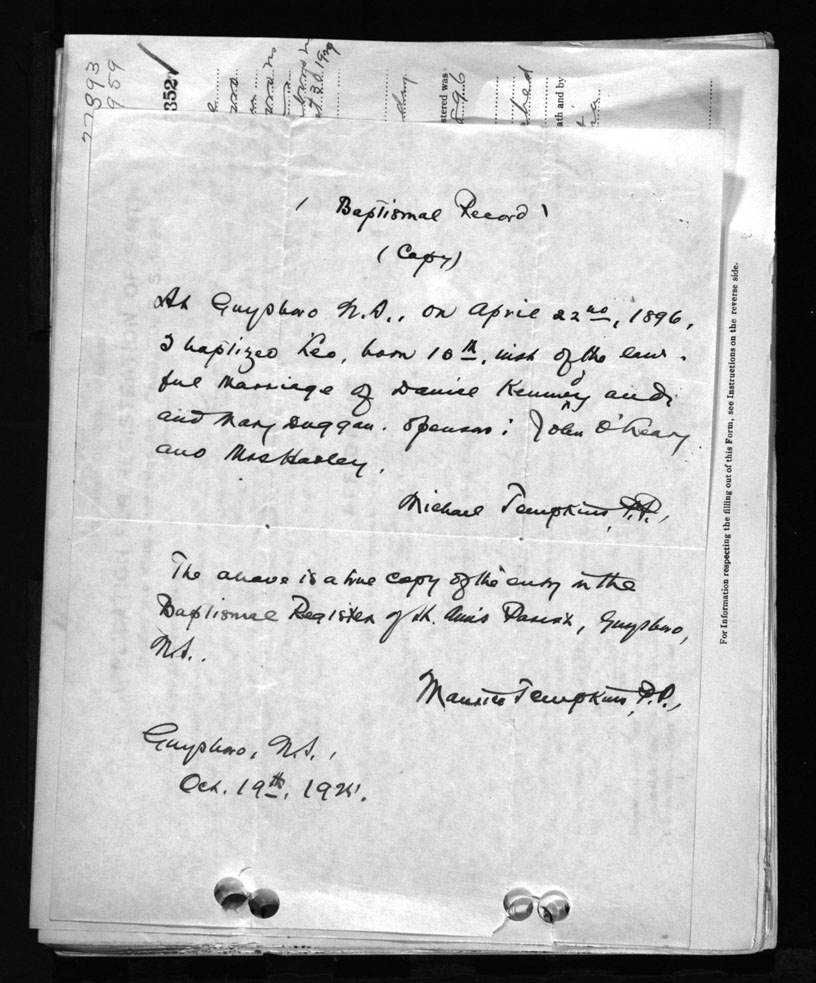 27893
959
3521
30 1929
stered was
596
ath and by
( Baptismal Record )
(Copy)
At Guysboro N.S., on April 22nd, 1896,
I baptized Leo, born 10th, inst of the law-
ful Marriage of Daniel Kennedy and
and Mary Duggan. Sponsors: John O'Leary
and Mrs Hadley.
Michael Tompkins, P.P.,
The above is a true copy of the entry in the
Baptismal Register of St. Ann's Parish, Guysboro,
N.S..
Maurice Tompkins, P.P.,
Guysboro, N.S.,
Oct. 19th, 192
For Information respecting the filling out of this Form, see Instructions on the reverse side.